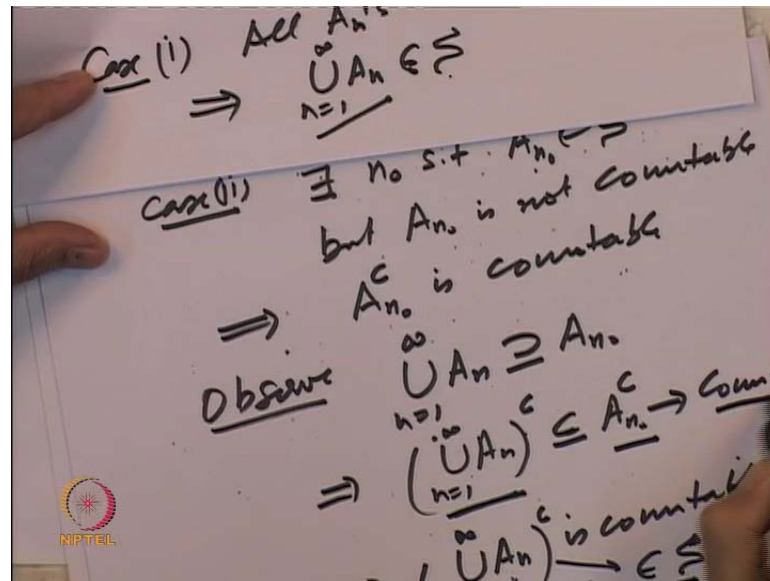 Case (i) All Aₙ's
⟹ ⋃_{n=1}^{∞} Aₙ ∈ S
Case (i) ∃ n₀ s.t. A_{n₀} ∈ S
but A_{n₀} is not countable
⟹ A_{n₀}^c is countable
Observe ⋃_{n=1}^{∞} Aₙ ⊇ A_{n₀}
⟹ (⋃_{n=1}^{∞} Aₙ)^c ⊆ A_{n₀}^c →
⋃ Aₙ)^c is → ∈ S
NPTEL